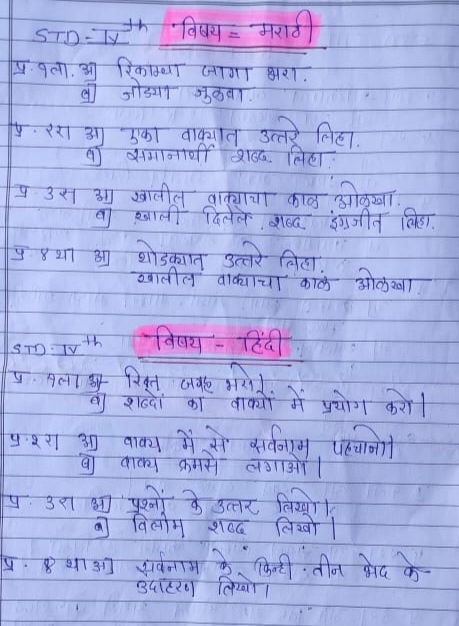 STD = IV th विषय = मराठी
प्र. १ला. अ] रिकाम्या जागा भरा.
ब] जोड्या जुळवा.
प्र. २रा अ] एका वाक्यात उत्तरे लिहा.
ब] समानार्थी शब्द लिहा.
प्र ३रा अ] खालील वाक्याचा काळ ओळखा.
ब] खाली दिलेले शब्द इंग्रजीत लिहा.
प्र ४था अ] थोडक्यात उत्तरे लिहा.
खालील वाक्याचा काळ ओळखा.
STD = IV th विषय - हिंदी
प्र. १ला अ] रिक्त जगह भरो।
ब] शब्दों का वाक्यों में प्रयोग करो।
प्र. २रा अ] वाक्य में से सर्वनाम पहचानो।
ब] वाक्य क्रमसे लगाओ।
प्र. ३रा अ] प्रश्नों के उत्तर लिखो।
ब] विलोम शब्द लिखो।
प्र. ४था अ] सर्वनाम के किन्ही तीन भेद के
उदाहरण लिखो।